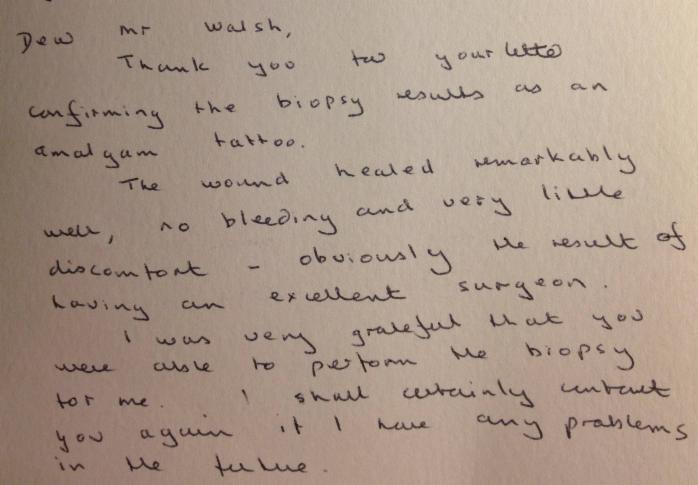 Dear Mr Walsh,
Thank you for your letter
confirming the biopsy results as an
amalgam tattoo.
The wound healed remarkably
well, no bleeding and very little
discomfort - obviously the result of
having an excellent surgeon.
I was very grateful that you
were able to perform the biopsy
for me. I shall certainly contact
you again if I have any problems
in the future.